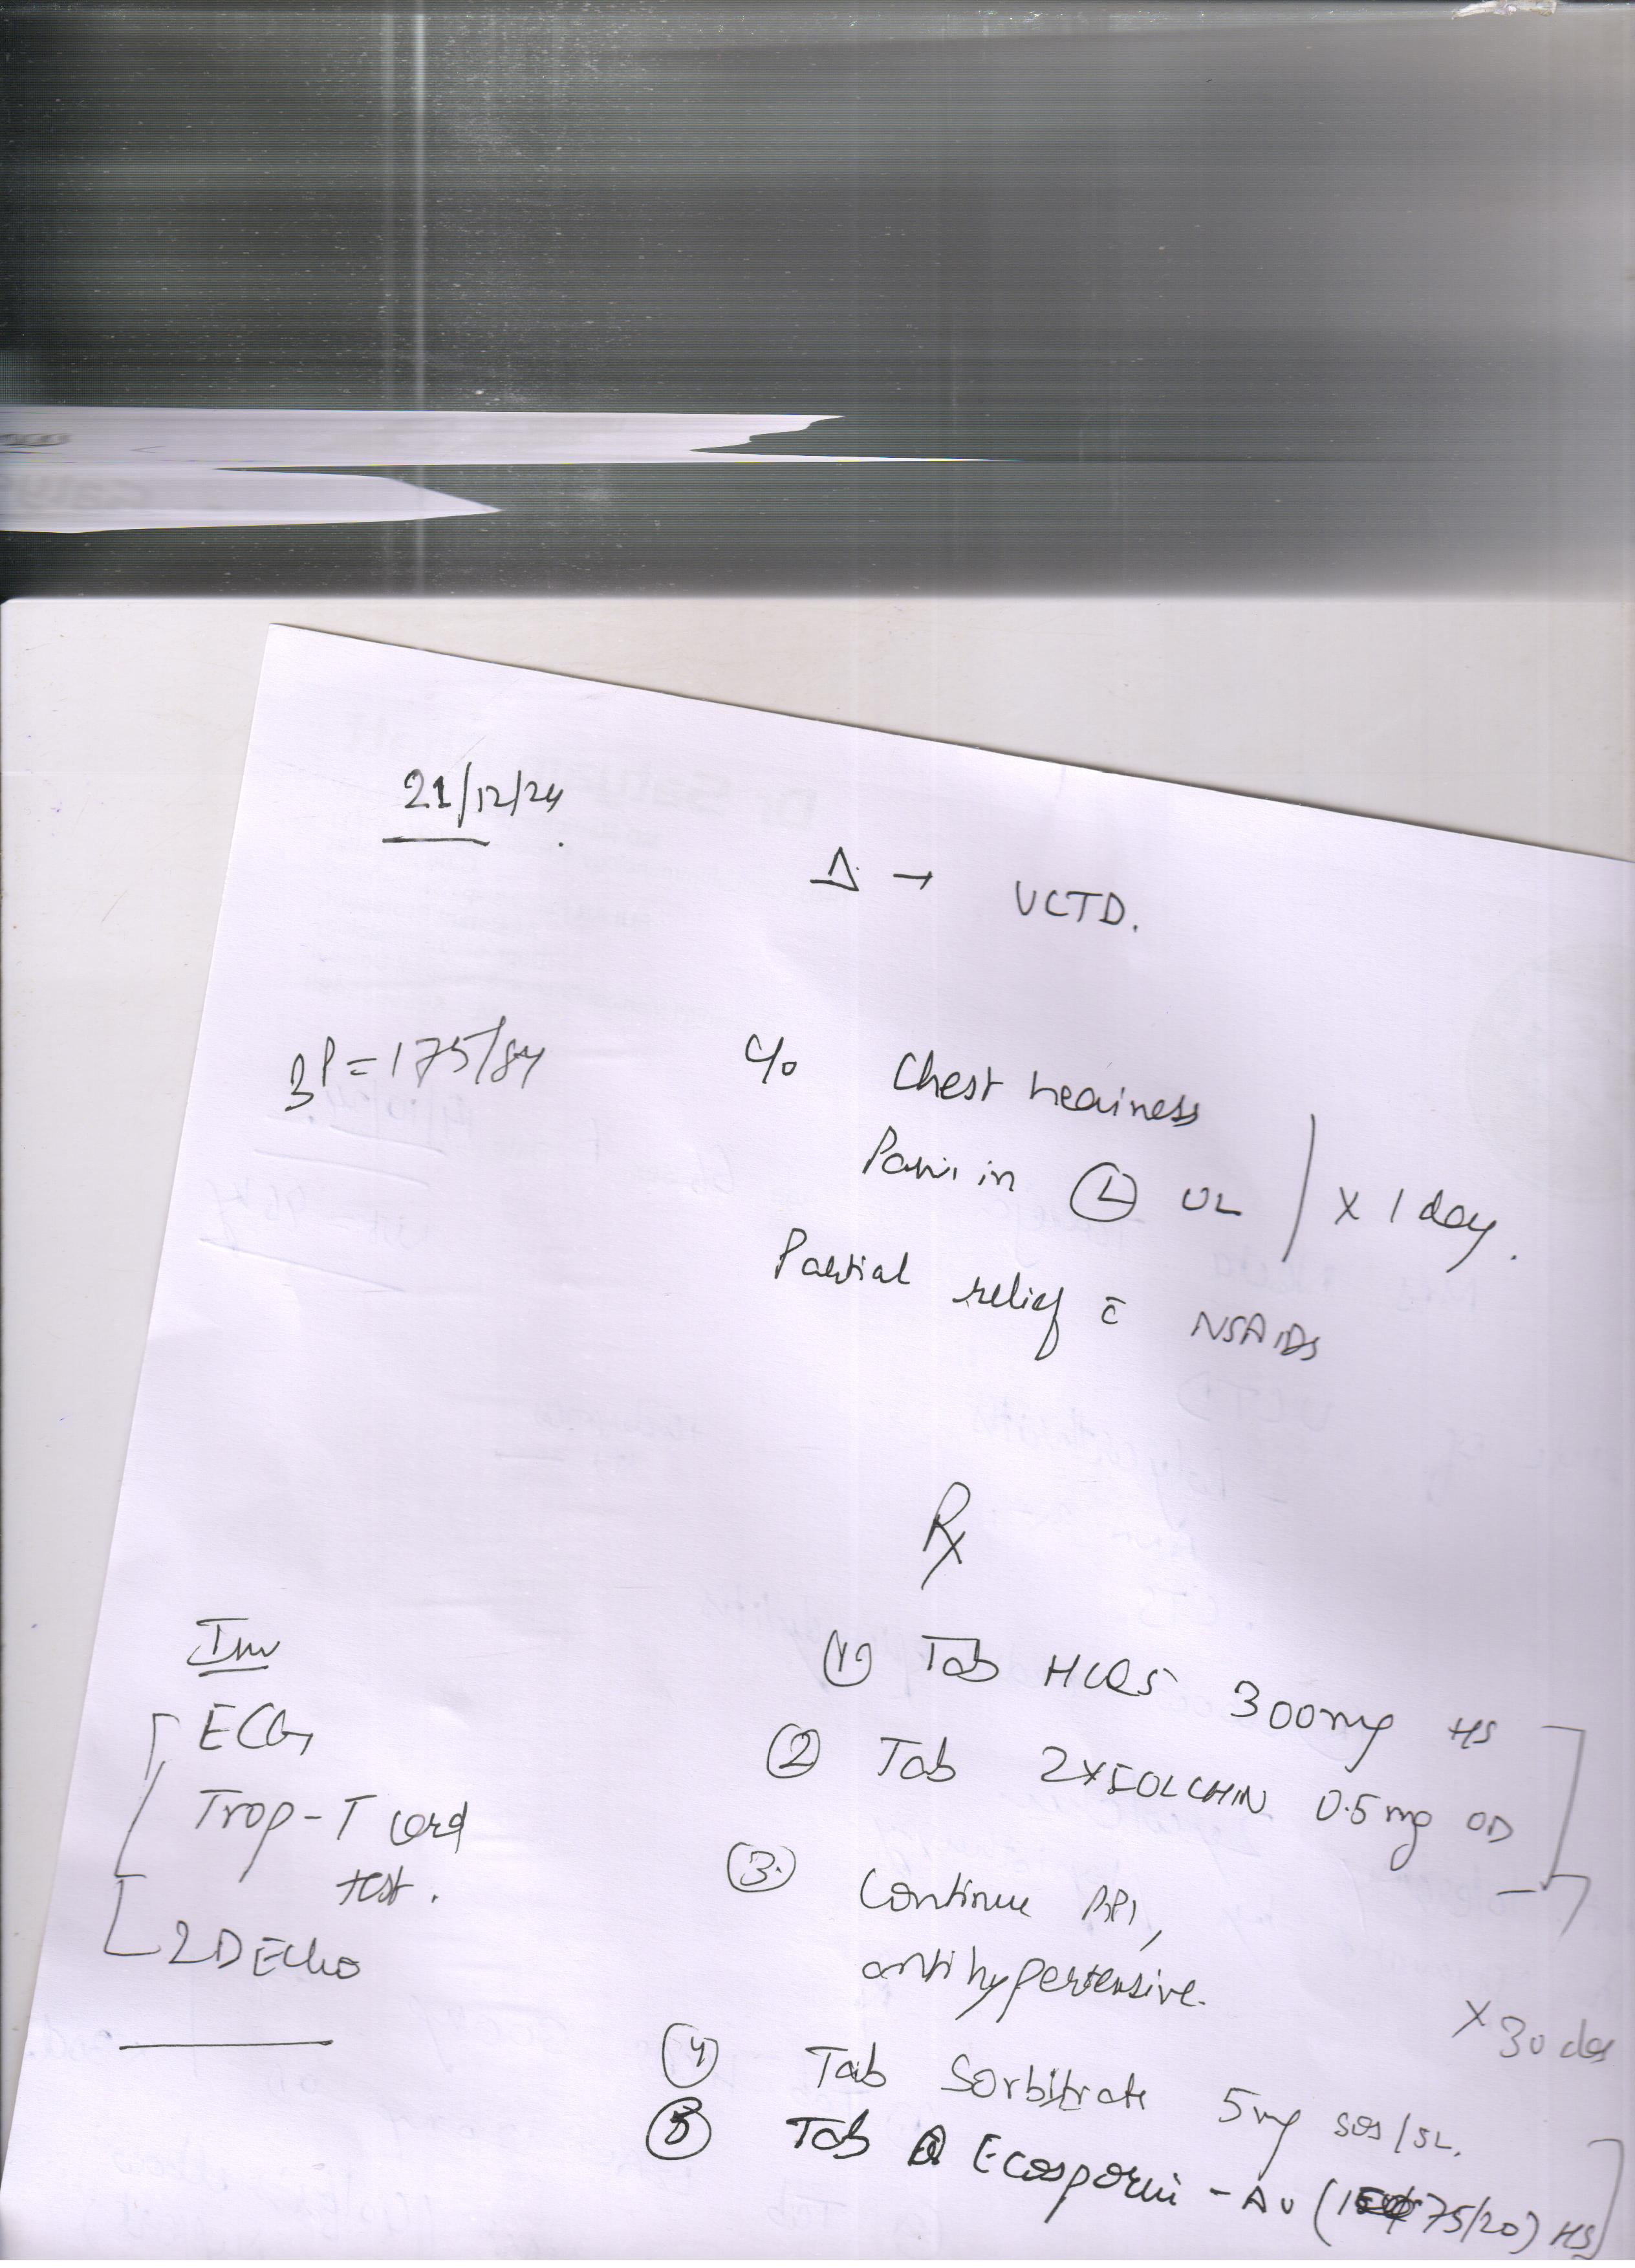 21/12/24
Δ → UCTD.
BP = 175/84
C/o Chest heaviness
Pain in (L) UL
x 1 day.
Partial relief c̄ NSAIDs
Rx
Inv
ECG
Trop-T card
test.
2D Echo
(1) Tab HCQS 300mg HS
(2) Tab ZYCOLCHIN 0.5mg OD
(3) Continue PPI,
antihypertensive.
x 30 days
(4) Tab Sorbitrate 5mg SOS/SL.
(5) Tab Ecosprin - AV (75/20) HS